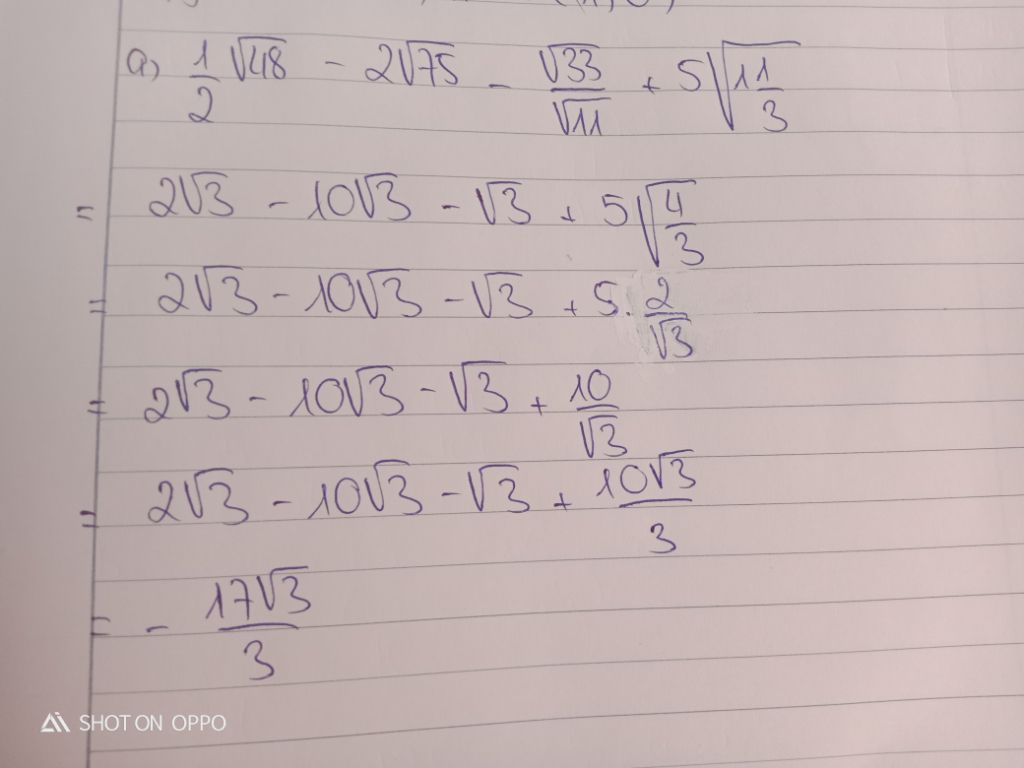 a, \frac{1}{2}\sqrt{48} - 2\sqrt{75} - \frac{\sqrt{33}}{\sqrt{11}} + 5\sqrt{1\frac{1}{3}}
= 2\sqrt{3} - 10\sqrt{3} - \sqrt{3} + 5\sqrt{\frac{4}{3}}
= 2\sqrt{3} - 10\sqrt{3} - \sqrt{3} + 5.\frac{2}{\sqrt{3}}
= 2\sqrt{3} - 10\sqrt{3} - \sqrt{3} + \frac{10}{\sqrt{3}}
= 2\sqrt{3} - 10\sqrt{3} - \sqrt{3} + \frac{10\sqrt{3}}{3}
= - \frac{17\sqrt{3}}{3}
SHOT ON OPPO